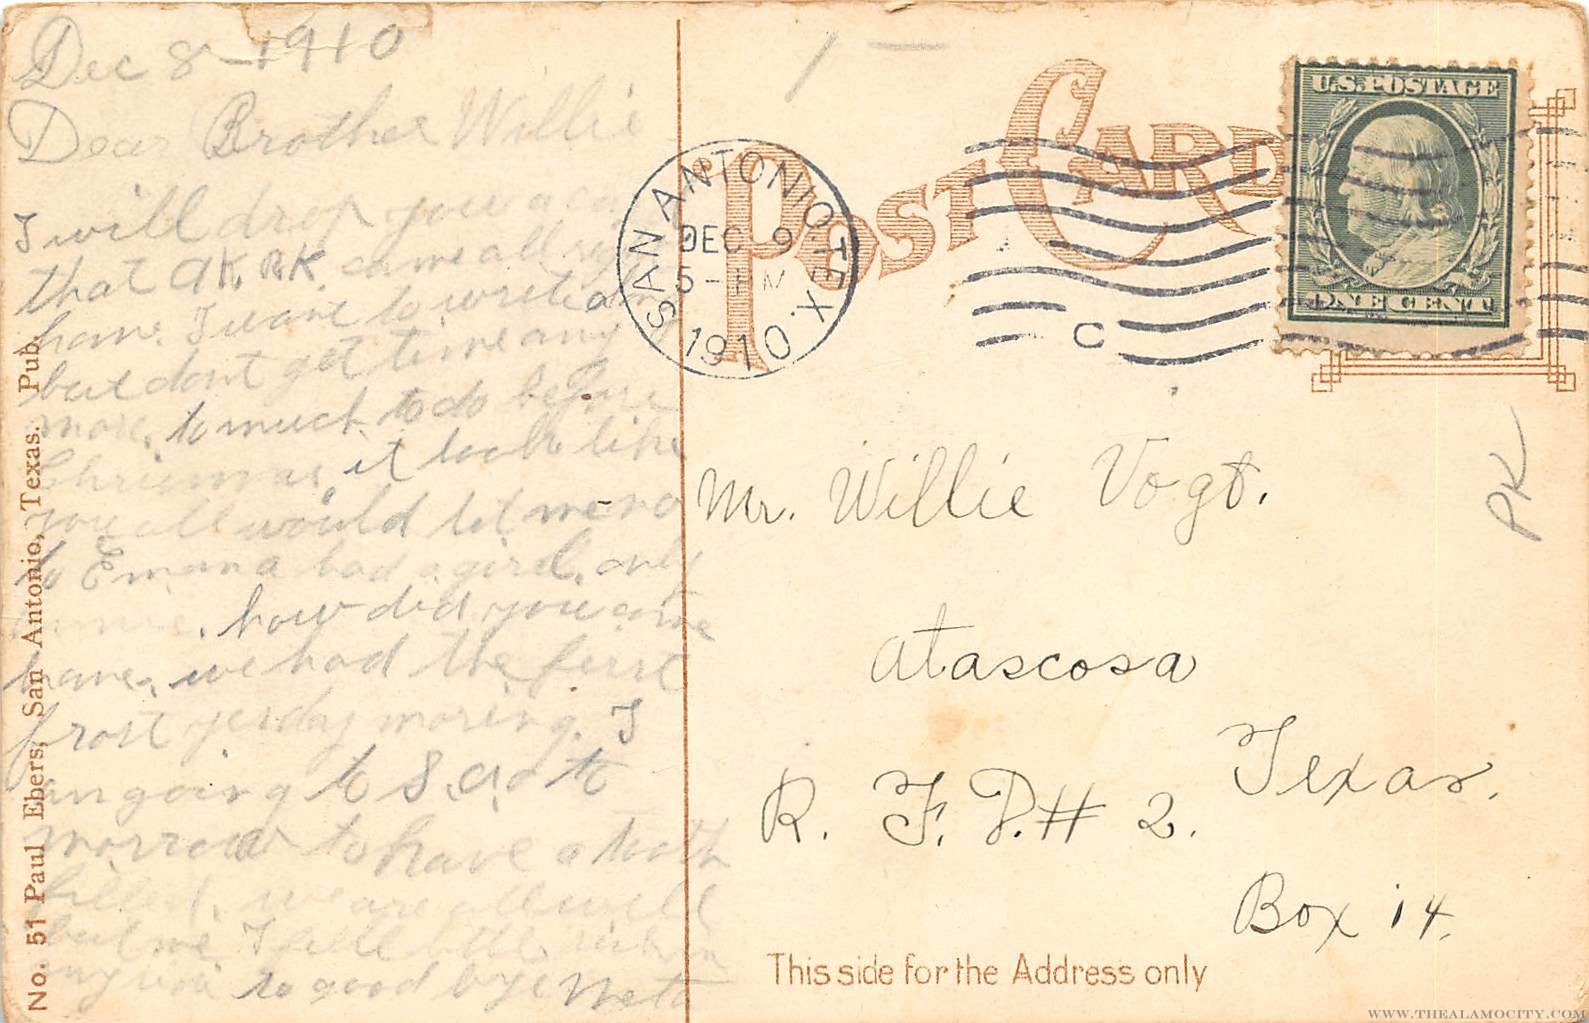 Dec 8 - 1910
Dear Brother Willie
I will drop you a
that came all
have. I want to write
but dont get time any
more, to much to do before
Chrismas, it look like
you all would let me no
to Emma had a girl, only
how did you come
home, we had the first
frost yesday morning. I
am going to S. a. to
morrow to have a tooth
filled, we are all well
but me I feel
so good bye Meta
No. 51 Paul Ebers, San Antonio, Texas. Pub.
POST CARD
SAN ANTONIO, TEX.
DEC 9
5 - M
1910
C
U.S. POSTAGE
ONE CENT
PK
Mr. Willie Vogt.
Atascosa
Texas.
R. F. D. # 2.
Box 14.
This side for the Address only
WWW.THEALAMOCITY.COM